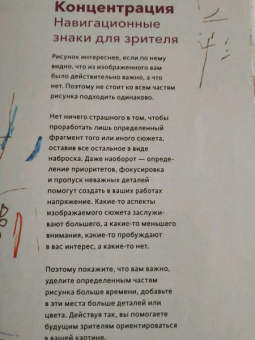 Концентрация
Навигационные
знаки для зрителя
Рисунок интереснее, если по нему
видно, что из изображенного вам
было действительно важно, а что
нет. Поэтому не стоит ко всем частям
рисунка подходить одинаково.
Нет ничего страшного в том, чтобы
проработать лишь определенный
фрагмент того или иного сюжета,
оставив все остальное в виде
наброска. Даже наоборот — опреде-
ление приоритетов, фокусировка
и пропуск неважных деталей
помогут создать в ваших работах
напряжение. Какие-то аспекты
изображаемого сюжета заслужи-
вают большего, а какие-то меньшего
внимания, какие-то пробуждают
в вас интерес, а какие-то нет.
Поэтому покажите, что вам важно,
уделите определенным частям
рисунка больше времени, добавьте
в эти места больше деталей или
цвета. Действуя так, вы помогаете
будущим зрителям ориентироваться
в вашей картине.